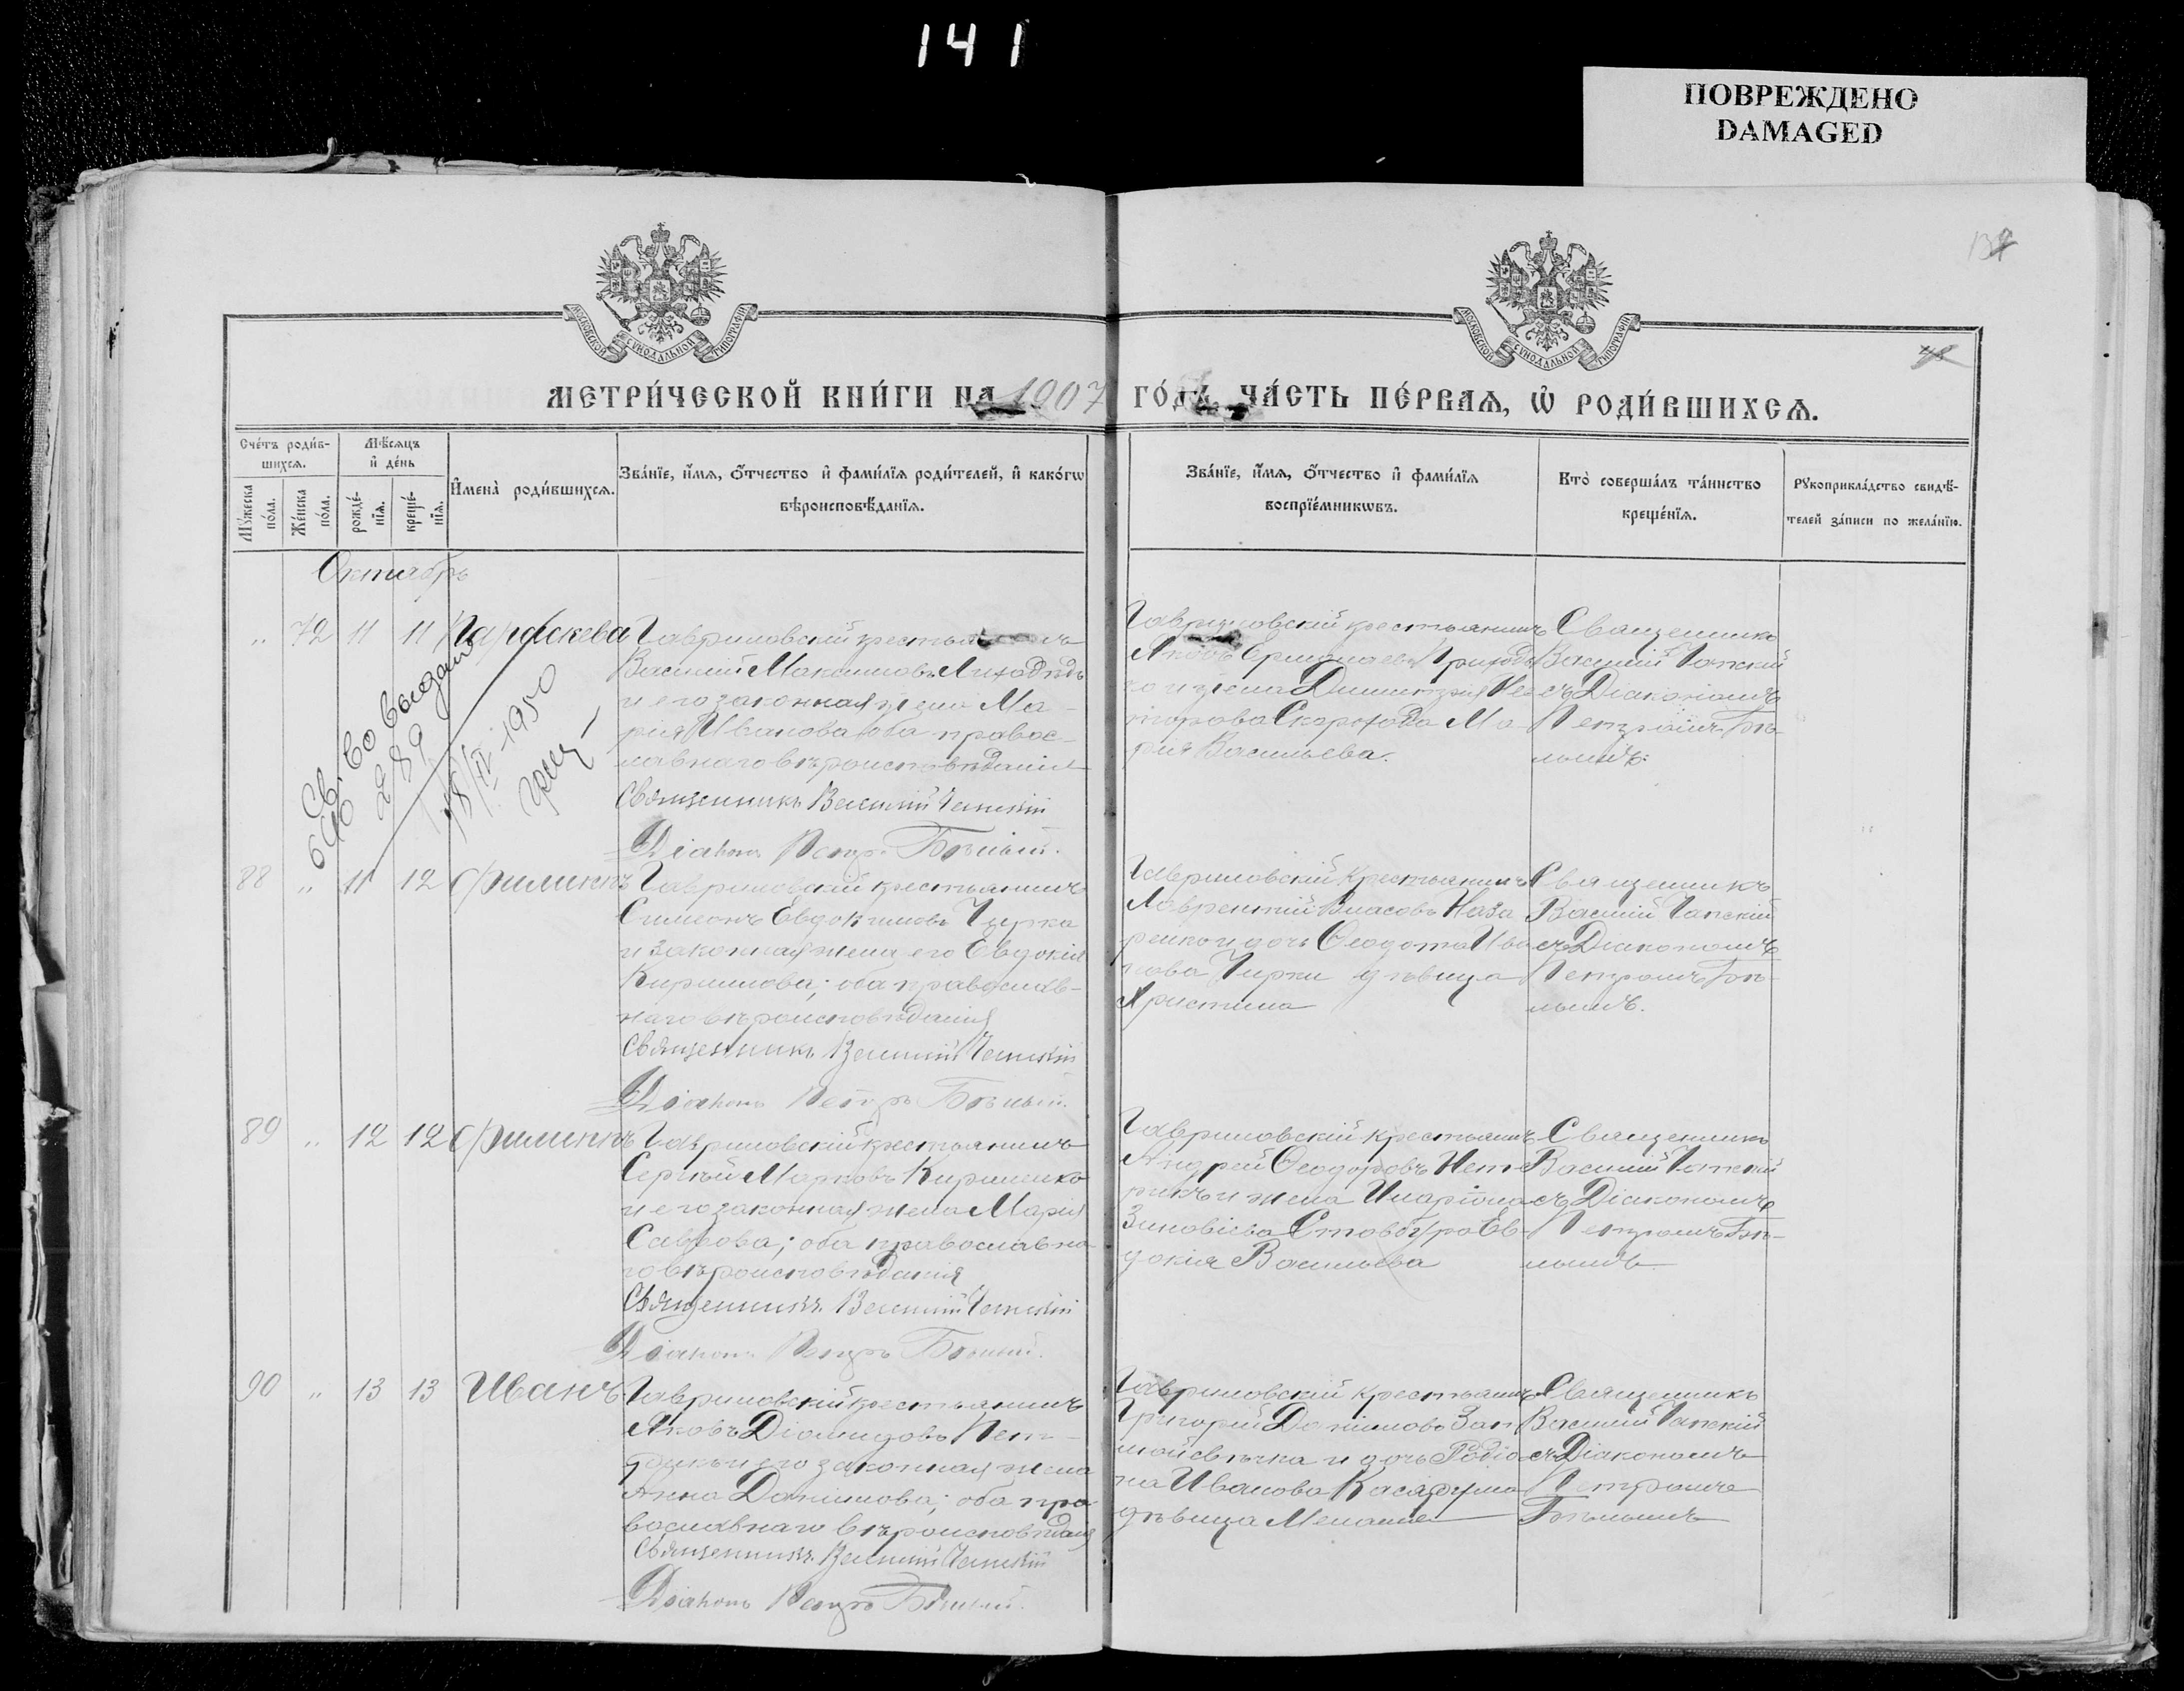 141
ПОВРЕЖДЕНО
DAMAGED
МОСКОВСКОЙ СѴНОДАЛЬНОЙ ТИПОГРАФІИ
МОСКОВСКОЙ СѴНОДАЛЬНОЙ ТИПОГРАФІИ
МЕТРИ́ЧЕСКОЙ КНИ́ГИ НА 1907 ГО́ДЪ, ЧА́СТЬ ПЕ́РВАЯ, Ѡ РОДИ́ВШИХСЯ.
Сче́тъ роди́в-
шихся.
Му́жеска по́ла.
Же́нска по́ла.
Мѣ́сяцъ и де́нь
рожде́-
нія.
креще́-
нія.
Имена̀ роди́вшихся.
Зва́ніе, и́мя, о́тчество и фами́лія роди́телей, и како́гѡ
вѣроисповѣ́данія.
Зва́ніе, и́мя, о́тчество и фами́лія
воспріе́мникѡвъ.
Кто̀ соверша́лъ та́инство
креще́нія.
Рукоприкла́дство свидѣ́-
телей за́писи по жела́нію.
Октябрь
" 72 11 11 Параскева
Гавриловскій
Василій Максимовъ Лиходѣдъ
и его законная жена Ма-
рія Иванова оба правос-
лавнаго вѣроисповѣданія
Священникъ Василій Чапскій
Діаконъ Петръ Бѣлый.
Гавриловскій крестьянинъ
Яковъ Ермолаевъ Приходь
ко и жена Димитрія Не
Скорохода Ма-
рія Васильева.
Священникъ
Василій Чапскій
съ Діакономъ
Петромъ Бѣ-
лымъ.
Св-во выдано
289
18/IV-1950
88 " 11 12 Филиппъ
Гавриловскій крестьянинъ
Симеонъ Евдокимовъ Чирка
и законная жена его Евдокія
Кириллова; оба православ-
наго вѣроисповѣданія
Священникъ Василій Чапскій
Діаконъ Петръ Бѣлый.
Гавриловскій крестьянинъ
Лаврентій Власовъ Наза
ренко и дочь Ѳеодота Ива
нова Чирки дѣвица
Христина
Священникъ
Василій Чапскій
съ Діакономъ
Петромъ Бѣ-
лымъ.
89 " 12 12 Филиппъ
Гавриловскій крестьянинъ
Сергѣй Марковъ Кириленко
и его законная жена Марія
Саввова; оба православна
го вѣроисповѣданія
Священникъ Василій Чапскій
Діаконъ Петръ Бѣлый.
Гавриловскій крестьянинъ
Андрей Ѳеодоровъ Нете
и жена Иларіона
Зиновіева Ев-
докія Васильева
Священникъ
Василій Чапскій
съ Діакономъ
Петромъ Бѣ-
лымъ
90 " 13 13 Иванъ
Гавриловскій крестьянинъ
Яковъ Діомидовъ
и его законная жена
Анна Даніилова; оба пра-
вославнаго вѣроисповѣданія
Священникъ Василій Чапскій
Діаконъ Петръ Бѣлый.
Гавриловскій крестьянинъ
Григорій Даніиловъ
и дочь Родіо
на Иванова
дѣвица Меланія
Священникъ
Василій Чапскій
съ Діакономъ
Петромъ
Бѣлымъ